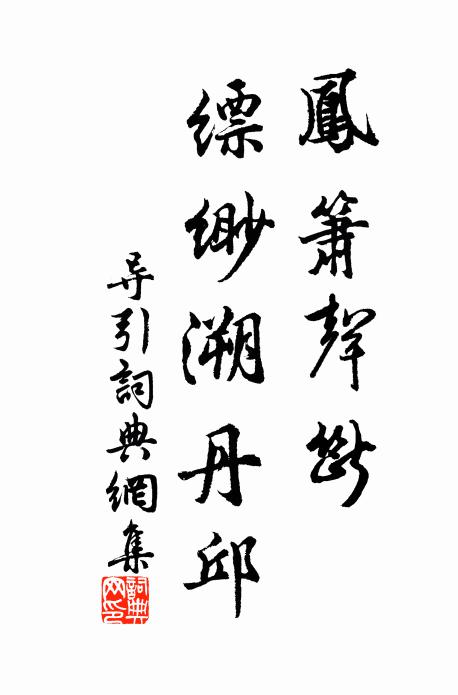 鳳簫聲斷
縹緲溯丹邱
导引詞典網集
詞典網印